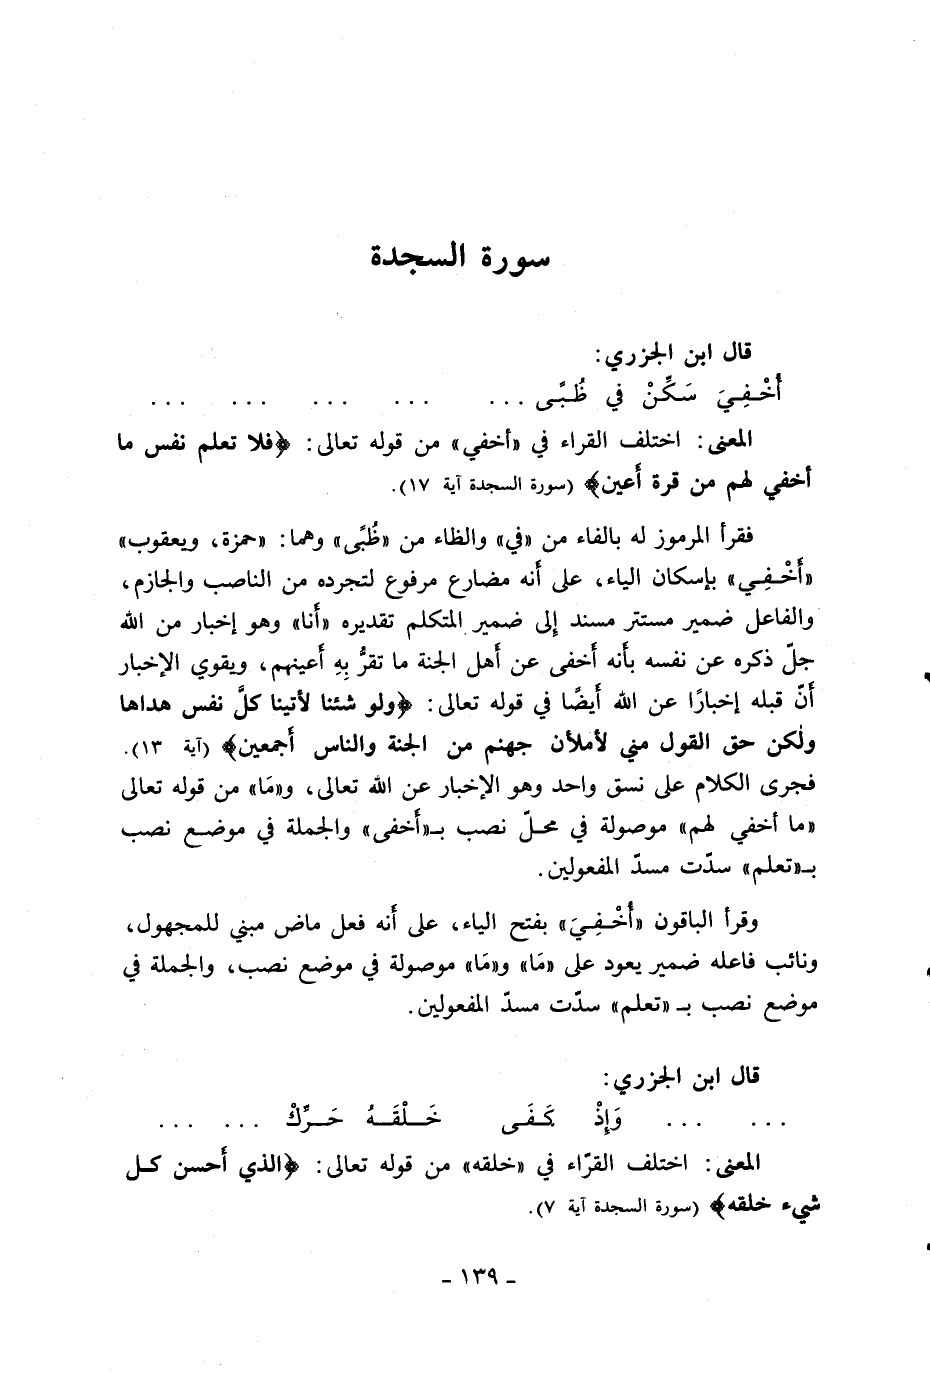 سورة السجدة
قال ابن الجزري:
أُخْـفِـيَ سَـكِّـنْ في ظُـبًـى ... ... ... ... ...
المعنى: اختلف القراء في «أخفي» من قوله تعالى: ﴿فلا تعلم نفس ما
أخفي لهم من قرة أَعين﴾ (سورة السجدة آية ١٧).
فقرأ المرموز له بالفاء من «في» والظاء من «ظُبًى» وهما: «حمزة، ويعقوب»
«أُخْـفِـي» بإسكان الياء، على أَنه مضارع مرفوع لتجرده من الناصب والجازم،
والفاعل ضمير مستتر مسند إِلى ضمير المتكلم تقديره «أَنا» وهو إِخبار من الله
جلّ ذكره عن نفسه بأَنه أَخفى عن أَهل الجنة ما تقرُّ بِهِ أَعينهم، ويقوي الإخبار
أَنّ قبله إِخبارًا عن الله أَيضًا في قوله تعالى: ﴿ولو شئنا لأتينا كلَّ نفس هداها
ولٰكن حق القول مني لأملأن جهنم من الجنة والناس أَجمعين﴾ (آية ١٣).
فجرى الكلام على نسق واحد وهو الإخبار عن الله تعالى، و«مَا» من قوله تعالى
«ما أخفي لهم» موصولة في محلّ نصب بـ«أَخفى» والجملة في موضع نصب
بـ«تعلم» سدّت مسدّ المفعولين.
وقرأ الباقون «أُخْـفِـيَ» بفتح الياء، على أَنه فعل ماض مبني للمجهول،
ونائب فاعله ضمير يعود على «مَا» و«مَا» موصولة في موضع نصب، والجملة في
موضع نصب بـ «تعلم» سدّت مسدّ المفعولين.
قال ابن الجزري:
... ... وَإِذْ كَـفَـى خَـلْـقَـهُ حَـرِّكْ ... ... ...
المعنى: اختلف القرّاء في «خلقه» من قوله تعالى: ﴿الذي أَحسن كـل
شيء خلقه﴾ (سورة السجدة آية ٧).
- ١٣٩ -